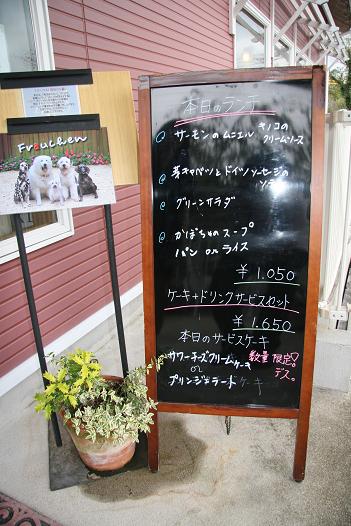 Freuchen
本日のランチ
サーモンのムニエル キノコの
クリームソース
芽キャベツとドイツソーセージの
ソテー
グリーンサラダ
かぼちゃのスープ
パン or ライス
¥1.050
ケーキ+ドリンクサービスセット
¥1.650
本日のサービスケーキ
サワーチーズクリームケーキ
or
プリンジェラートケーキ
数量限定!
デス。